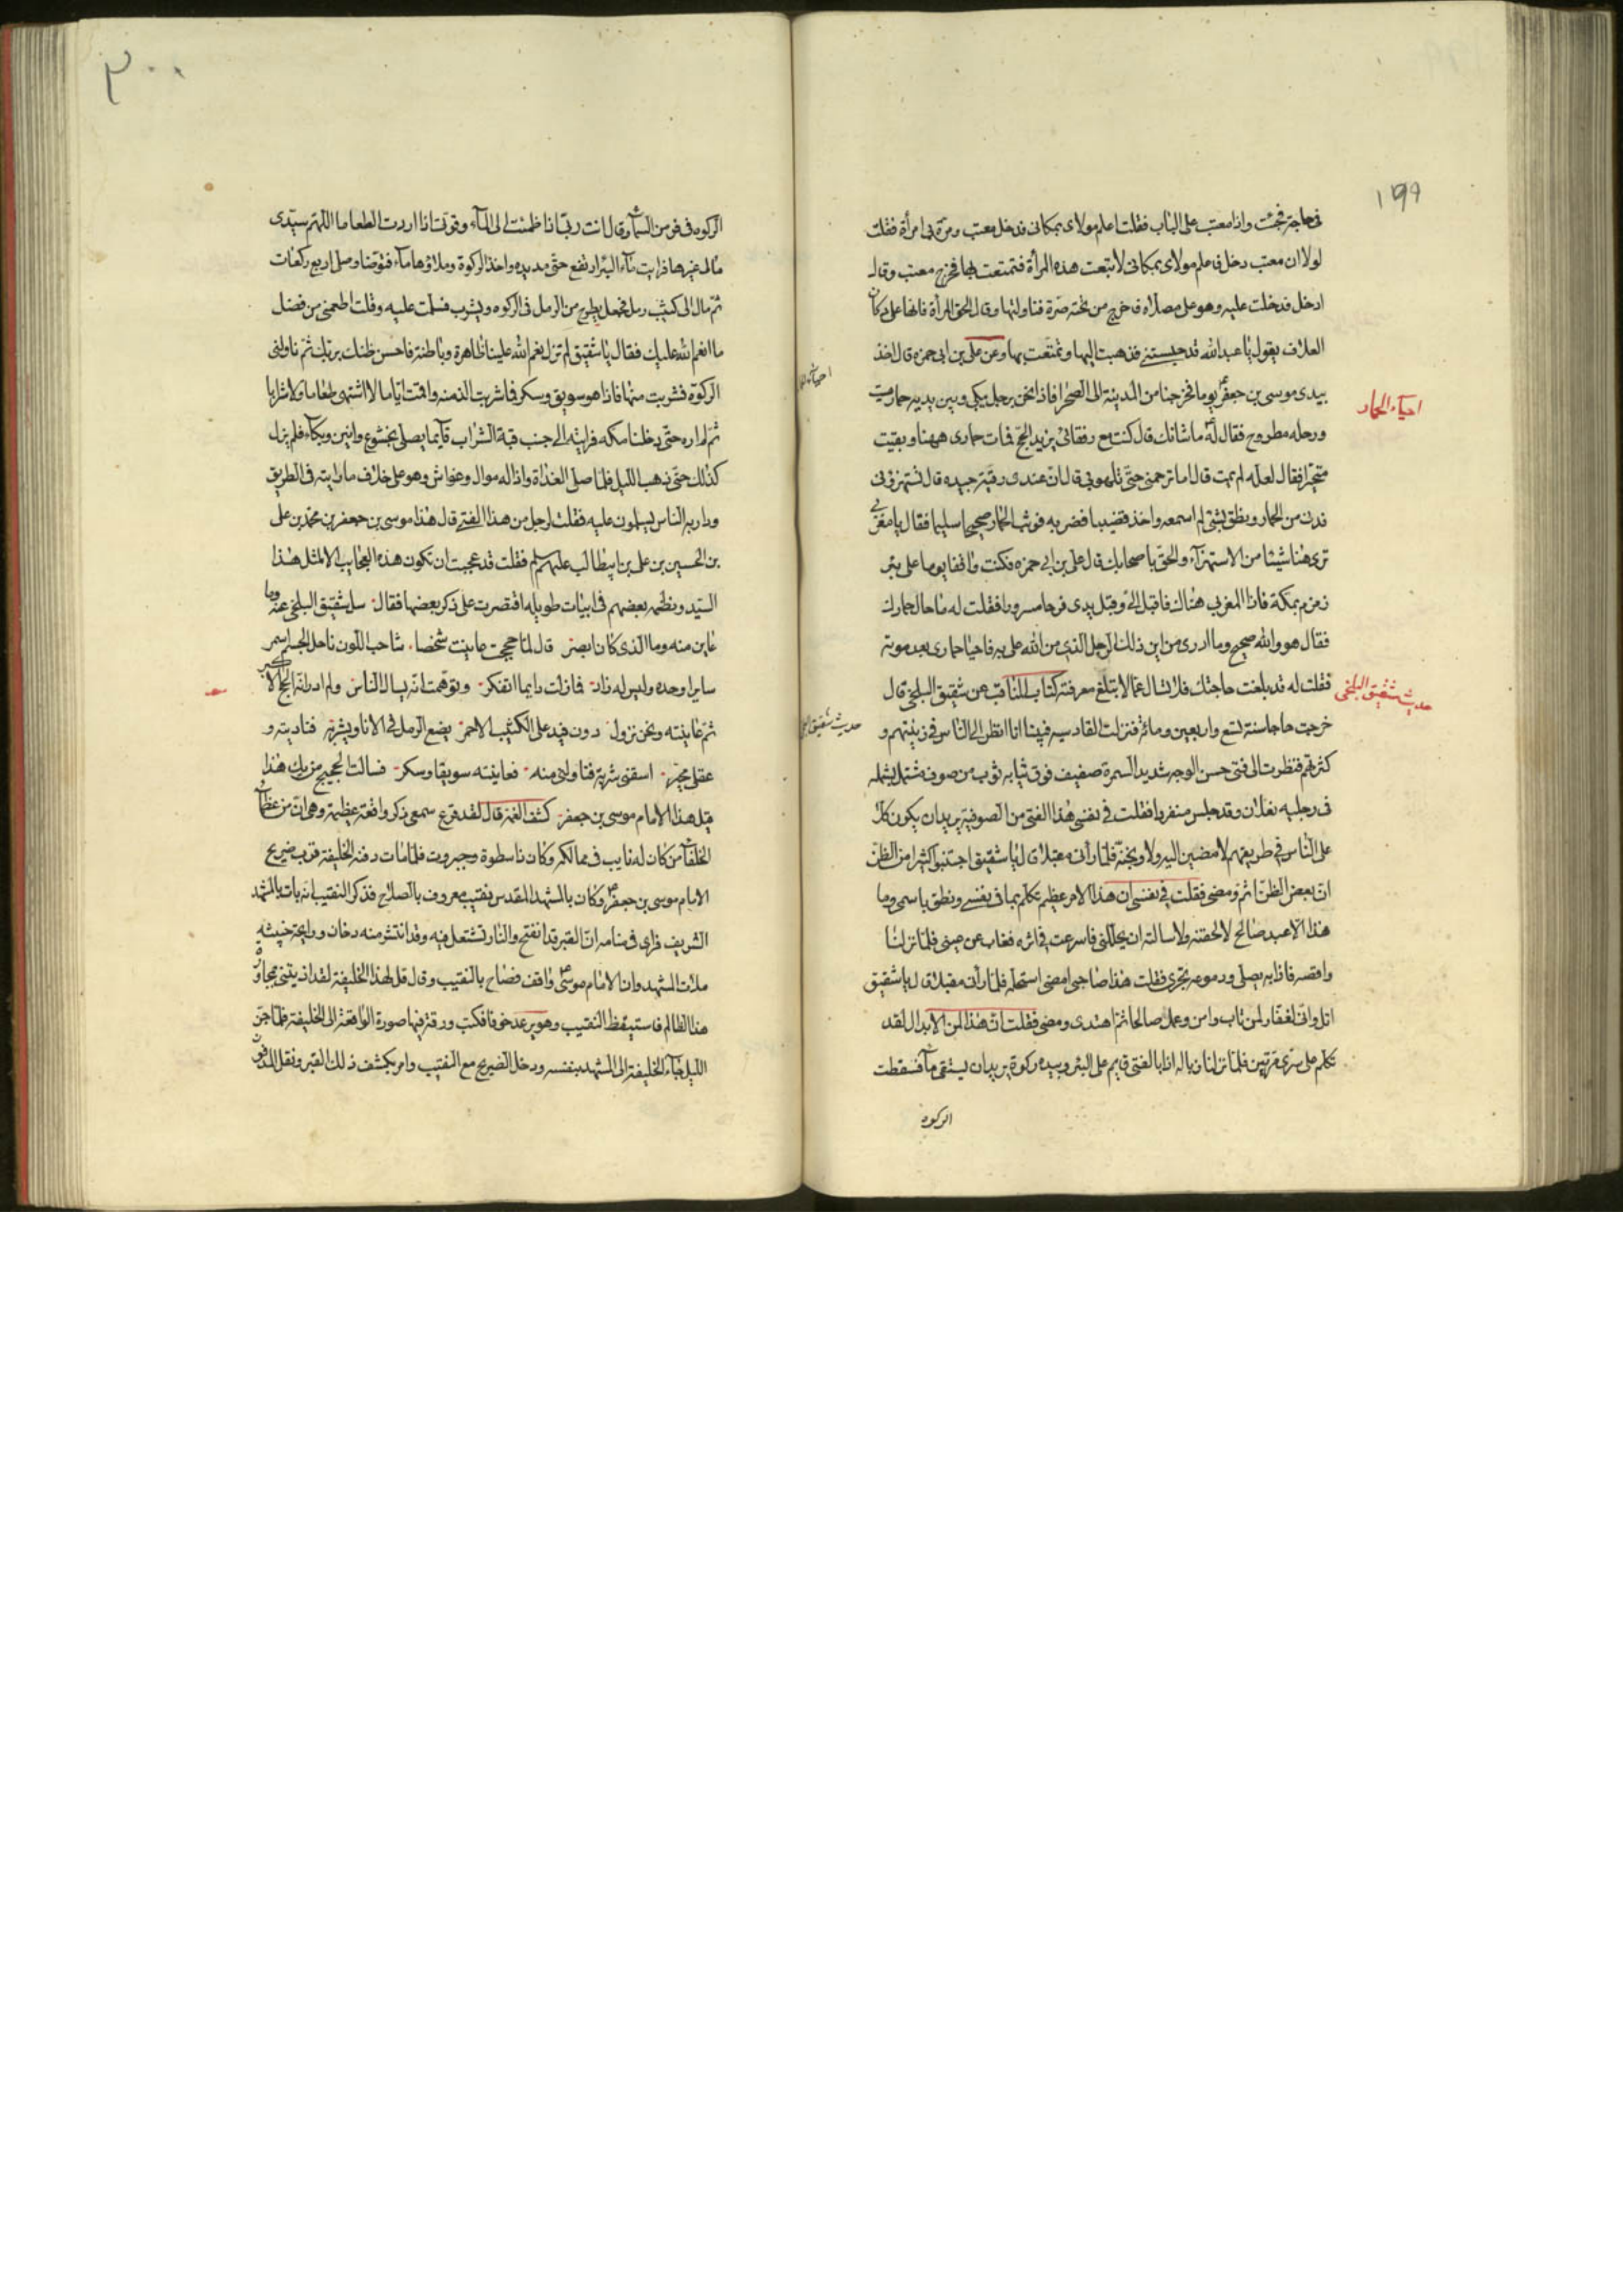 ١٩٩
في حاجة فجئت واذا معتب على الباب فقلت اعلم مولاى بمكانى فدخل معتب ومرّت بى امرأة فقلت
لولا ان معتب دخل فاعلم مولاى بمكانى لاتبعت هذه المرأة فتمتعت بها فخرج معتب وقال
ادخل فدخلت عليه وهو على مصلاه فاخرج من تحته صرة فناولنيها وقال الحق المرأة فانها على دكان
العلاف يقول يا عبد الله قد حبستنى فذهبت اليها وتمتعت بها وعن على بن ابى حمزه قال اخذ
بيدى موسى بن جعفر يوما فخرجنا من المدينة الى الصحرا فاذا نحن برجل يبكى وبين يديه حمار ميت
احياء الحمار
ورحله مطروح فقال له ما شانك قال كنت مع رفقائى نريد الحج فمات حمارى ههنا وبقيت
متحيرا فقال لعله لم يمت قال اما ترحمنى حتى تلهو بى قال ان عندى رقية جيده قال تستهزئ بى
فدن من الحمار ونطق بشئ لم اسمعه واخذ قضيبا فضربه فوثب الحمار صحيحا سليما فقال يا مغربى
ترى هنا شيئا من الاستهزاء والحق باصحابك قال على بن ابى حمزه فكنت واقفا يوما على بئر
زمزم بمكة فاذا المغربى هناك فاقبل الىّ وقبل يدى فرحا مسرورا فقلت له ما حال حمارك
فقال هو والله صحيح وما ادرى من اين ذلك الرجل الذى من الله على به فاحيا حمارى بعد موته
فقلت له قد بلغت حاجتك فلا تسال عما لا تبلغ معرفته كتاب المناقب عن شقيق البلخى قال
حديث شقيق البلخى
خرجت حاجا سنة تسع واربعين ومائة فنزلت القادسيه فبينا انا انظر الى الناس فى زينتهم و
كثرتهم فنظرت الى فتى حسن الوجه شديد السمرة ضعيف فوق ثيابه ثوب من صوف مشتمل بشمله
فى رجليه نعلان وقد جلس منفردا فقلت فى نفسى هذا الفتى من الصوفية يريد ان يكون كلا
على الناس فى طريقهم لامضين اليه ولاوبخنه فلما رأنى مقبلا قال يا شقيق اجتنبوا كثيرا من الظن
ان بعض الظن اثم ومضى فقلت فى نفسى ان هذا الامر عظيم تكلم بما فى نفسى ونطق باسمى وما
هذا الا عبد صالح لالحقنه ولاسالنه ان يحللنى فاسرعت فى اثره فغاب عن عينى فلما نزلنا
واقصه فاذا به يصلى ودموعه تجرى فقلت هذا صاحبى امضى استحله فلما رأنى مقبلا قال يا شقيق
اتل وانى لغفار لمن تاب وامن وعمل صالحا ثم اهتدى ومضى فقلت ان هذا لمن الابدال لقد
تكلم على سرى مرتين فلما نزلنا زباله اذا بالفتى قايم على البئر وبيده ركوة يريد ان يستقى ماء فسقطت
الركوه
٣٠٠
الركوه فى فرمق السماء وقال انت ربى اذا ظمئت الى الماء وقوتى اذا اردت الطعاما اللهم سيدى
مالى غيرها فرايت ماء البئر ارتفع حتى مد يده واخذ الركوة وملاؤها ماء فتوضا وصلى اربع ركعات
ثم مال الى كثيب رمل فجعل يطرح من الرمل فى الركوه ويشرب فسلمت عليه وقلت اطعمنى من فضل
ما انعم الله عليك فقال يا شقيق لم تزل نعم الله علينا ظاهرة وباطنة فاحسن ظنك بربك ثم ناولنى
الركوة فشربت منها فاذا هو سويق وسكر فاشربت الذ منه واقمت اياما لا اشتهى طعاما ولا شرابا
ثم لم اره حتى دخلنا مكه فرايته الى جنب قبة الشراب قائما يصلى بخشوع وانين وبكاء فلم يزل
كذلك حتى ذهب الليل فلما صلى الغداة واذا له موال وغواش وهو على خلاف ما رايته فى الطريق
ودار به الناس يسلمون عليه فقلت لرجل من هذا الفتى قال هذا موسى بن جعفر بن محمد بن على
بن الحسين بن على بن ابيطالب عليهم السلم فقلت قد عجبت ان تكون هذه العجايب الا لمثل هذا
السيد ونظمه بعضهم فى ابيات طويله اقتصرت على ذكر بعضها فقال سل شقيق البلخى عنه وما
عاين منه وما الذى كان ابصر قال لما حججت عاينت شخصا شاحب اللون ناحل الجسم اسمر
سايرا وحده وليس له زاد فمازلت دايما اتفكر وتوهمت انه يسال الناس ولم ادر انه الحج الاكبر
ثم عاينته ونحن نزول دون فيد على الكثيب الاحمر يضع الرمل فى الانا ويشربه فناديته و
عقلى محير اسقنى شربة فناولنى منه فعاينته سويقا وسكر فسالت الحجيج من يك هذا
قيل هذا الامام موسى بن جعفر كشف الغمة قال لقد قرع سمعى ذكر واقعة عظيمة وهى ان من عظماء
الخلفاء من كان له نايب فى ممالكه وكان ذا سطوة وجبروت فلما مات دفنه الخليفة قرب ضريح
الامام موسى بن جعفر وكان بالمشهد المقدس نقيب معروف بالصلاح فذكر النقيب انه بات بالمشهد
الشريف فراى فى منامه ان القبر قد انفتح والنار تشتعل فيه وقد انتشر منه دخان ورايحة خبيثه
ملات المشهد وان الامام موسى واقف فصاح بالنقيب وقال قل لهذا الخليفة لقد اذيتنى بمجاورة
هذا الظالم فاستيقظ النقيب وهو يرعد خوفا فكتب ورقة فيها صورة الواقعة الى الخليفة فلما جن
الليل جاء الخليفة الى المشهد بنفسه ودخل الضريح مع النقيب وامر بكشف ذلك القبر ونقل المدفون